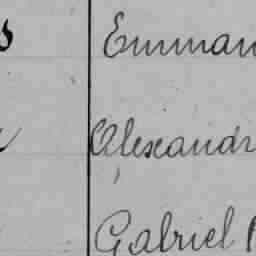 s Emman
Alexandr
Gabriel